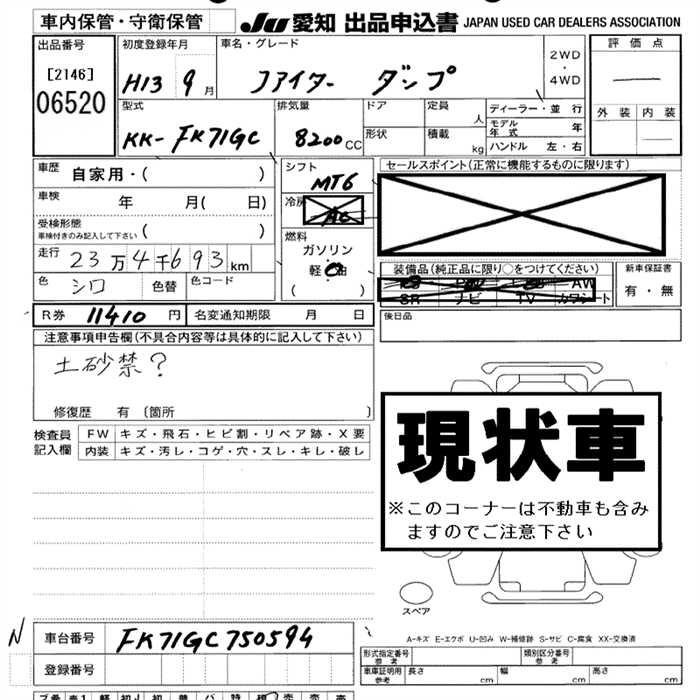 車内保管・守衛保管 JU 愛知 出品申込書 JAPAN USED CAR DEALERS ASSOCIATION
出品番号 初度登録年月 車名・グレード 2WD・4WD 評価点
[2146]
06520 H13 9月 ファイター ダンプ
外装 内装
型式 排気量 ドア 定員 人 ディーラー・並行
KK-FK71GC 8200CC 形状 積載 kg モデル年式 年
ハンドル 左・右
車歴 自家用・( ) シフト MT6 セールスポイント(正常に機能するものに限ります)
車検 年 月( 日) 冷房 AC
受検形態 ( )
車検付きのみ記入して下さい
燃料
ガソリン・軽油
( )
走行 23万4千693km
色 シロ 色替 色コード
装備品(純正品に限り○をつけてください) 新車保証書
AW 有・無
SR ナビ TV カワシート
R券 11410円 名変通知期限 月 日 後日品
注意事項申告欄(不具合内容等は具体的に記入して下さい)
土砂禁?
修復歴 有 〔箇所 〕
検査員記入欄 FW キズ・飛石・ヒビ割・リペア跡・X要
内装 キズ・汚レ・コゲ・穴・スレ・キレ・破レ
現状車
※このコーナーは不動車も含み
ますのでご注意下さい
スペア
N 車台番号 FK71GC750594
A-キズ E-エクボ U-凹み W-補修跡 S-サビ C-腐食 XX-交換済
登録番号
形式指定番号 参考 類別区分番号 参考
車車証明用 参考 長さ cm 幅 cm 高さ cm